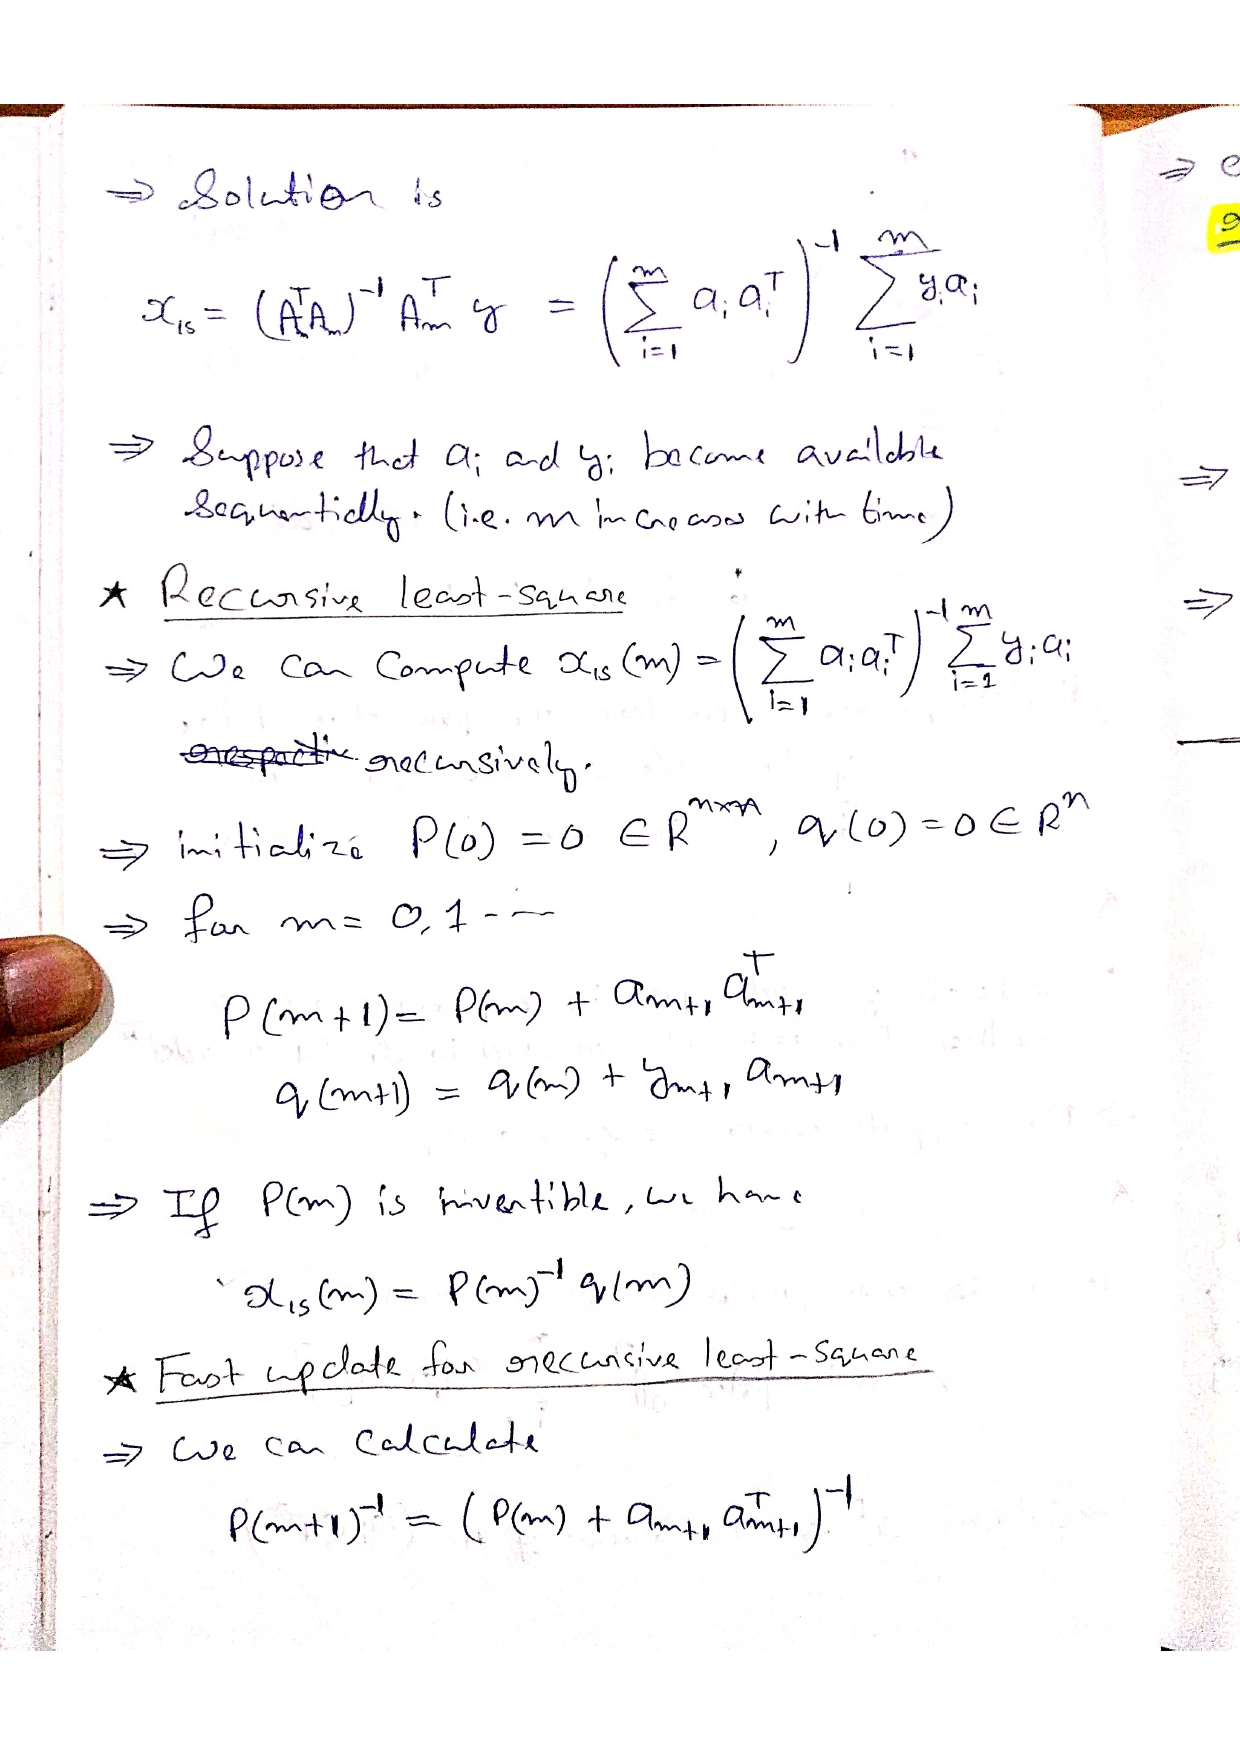 ⇒ Solution is
x_ls = (A_m^T A_m)^-1 A_m^T y = (∑_{i=1}^{m} a_i a_i^T)^-1 ∑_{i=1}^{m} y_i a_i
⇒ Suppose that a_i and y_i become available
sequentially. (i.e. m increases with time)
★ Recursive least-square
⇒ We can compute x_ls(m) = (∑_{i=1}^{m} a_i a_i^T)^-1 ∑_{i=1}^{m} y_i a_i
recursively.
⇒ initialize P(0) = 0 ∈ R^{n×n}, q(0) = 0 ∈ R^n
⇒ for m = 0, 1 ---
P(m+1) = P(m) + a_{m+1} a_{m+1}^T
q(m+1) = q(m) + y_{m+1} a_{m+1}
⇒ If P(m) is invertible, we have
x_ls(m) = P(m)^-1 q(m)
★ Fast update for recursive least-square
⇒ We can calculate
P(m+1)^-1 = (P(m) + a_{m+1} a_{m+1}^T)^-1
⇒
⇒
⇒